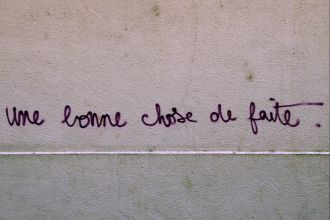 une bonne chose de faite.